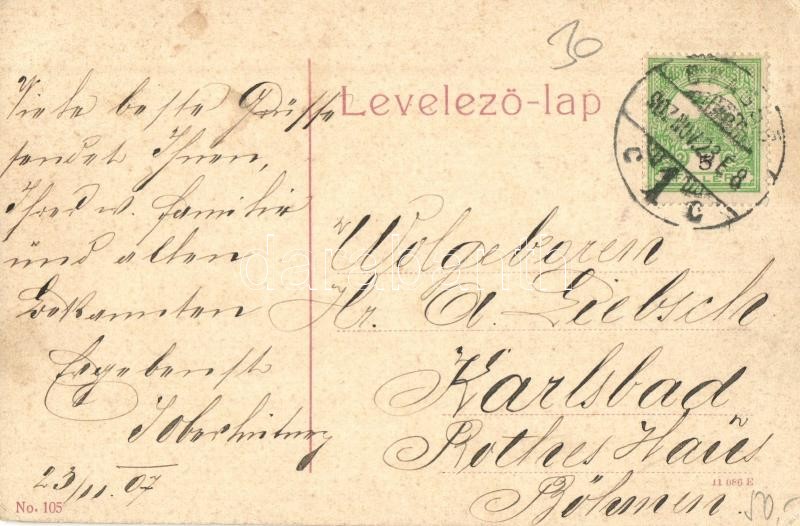 30
Levelező-lap
Viele beste Grüsse
sendet Ihnen,
Ihrer w. Familie
und allen
Bekannten
Ergebenst
23/11. 07
No. 105
907 NOV 23
C 1 C
Wolgeboren
Hr. A. Liebsch
Karlsbad
Rothes Haus
Böhmen.
11 086 E
50,-